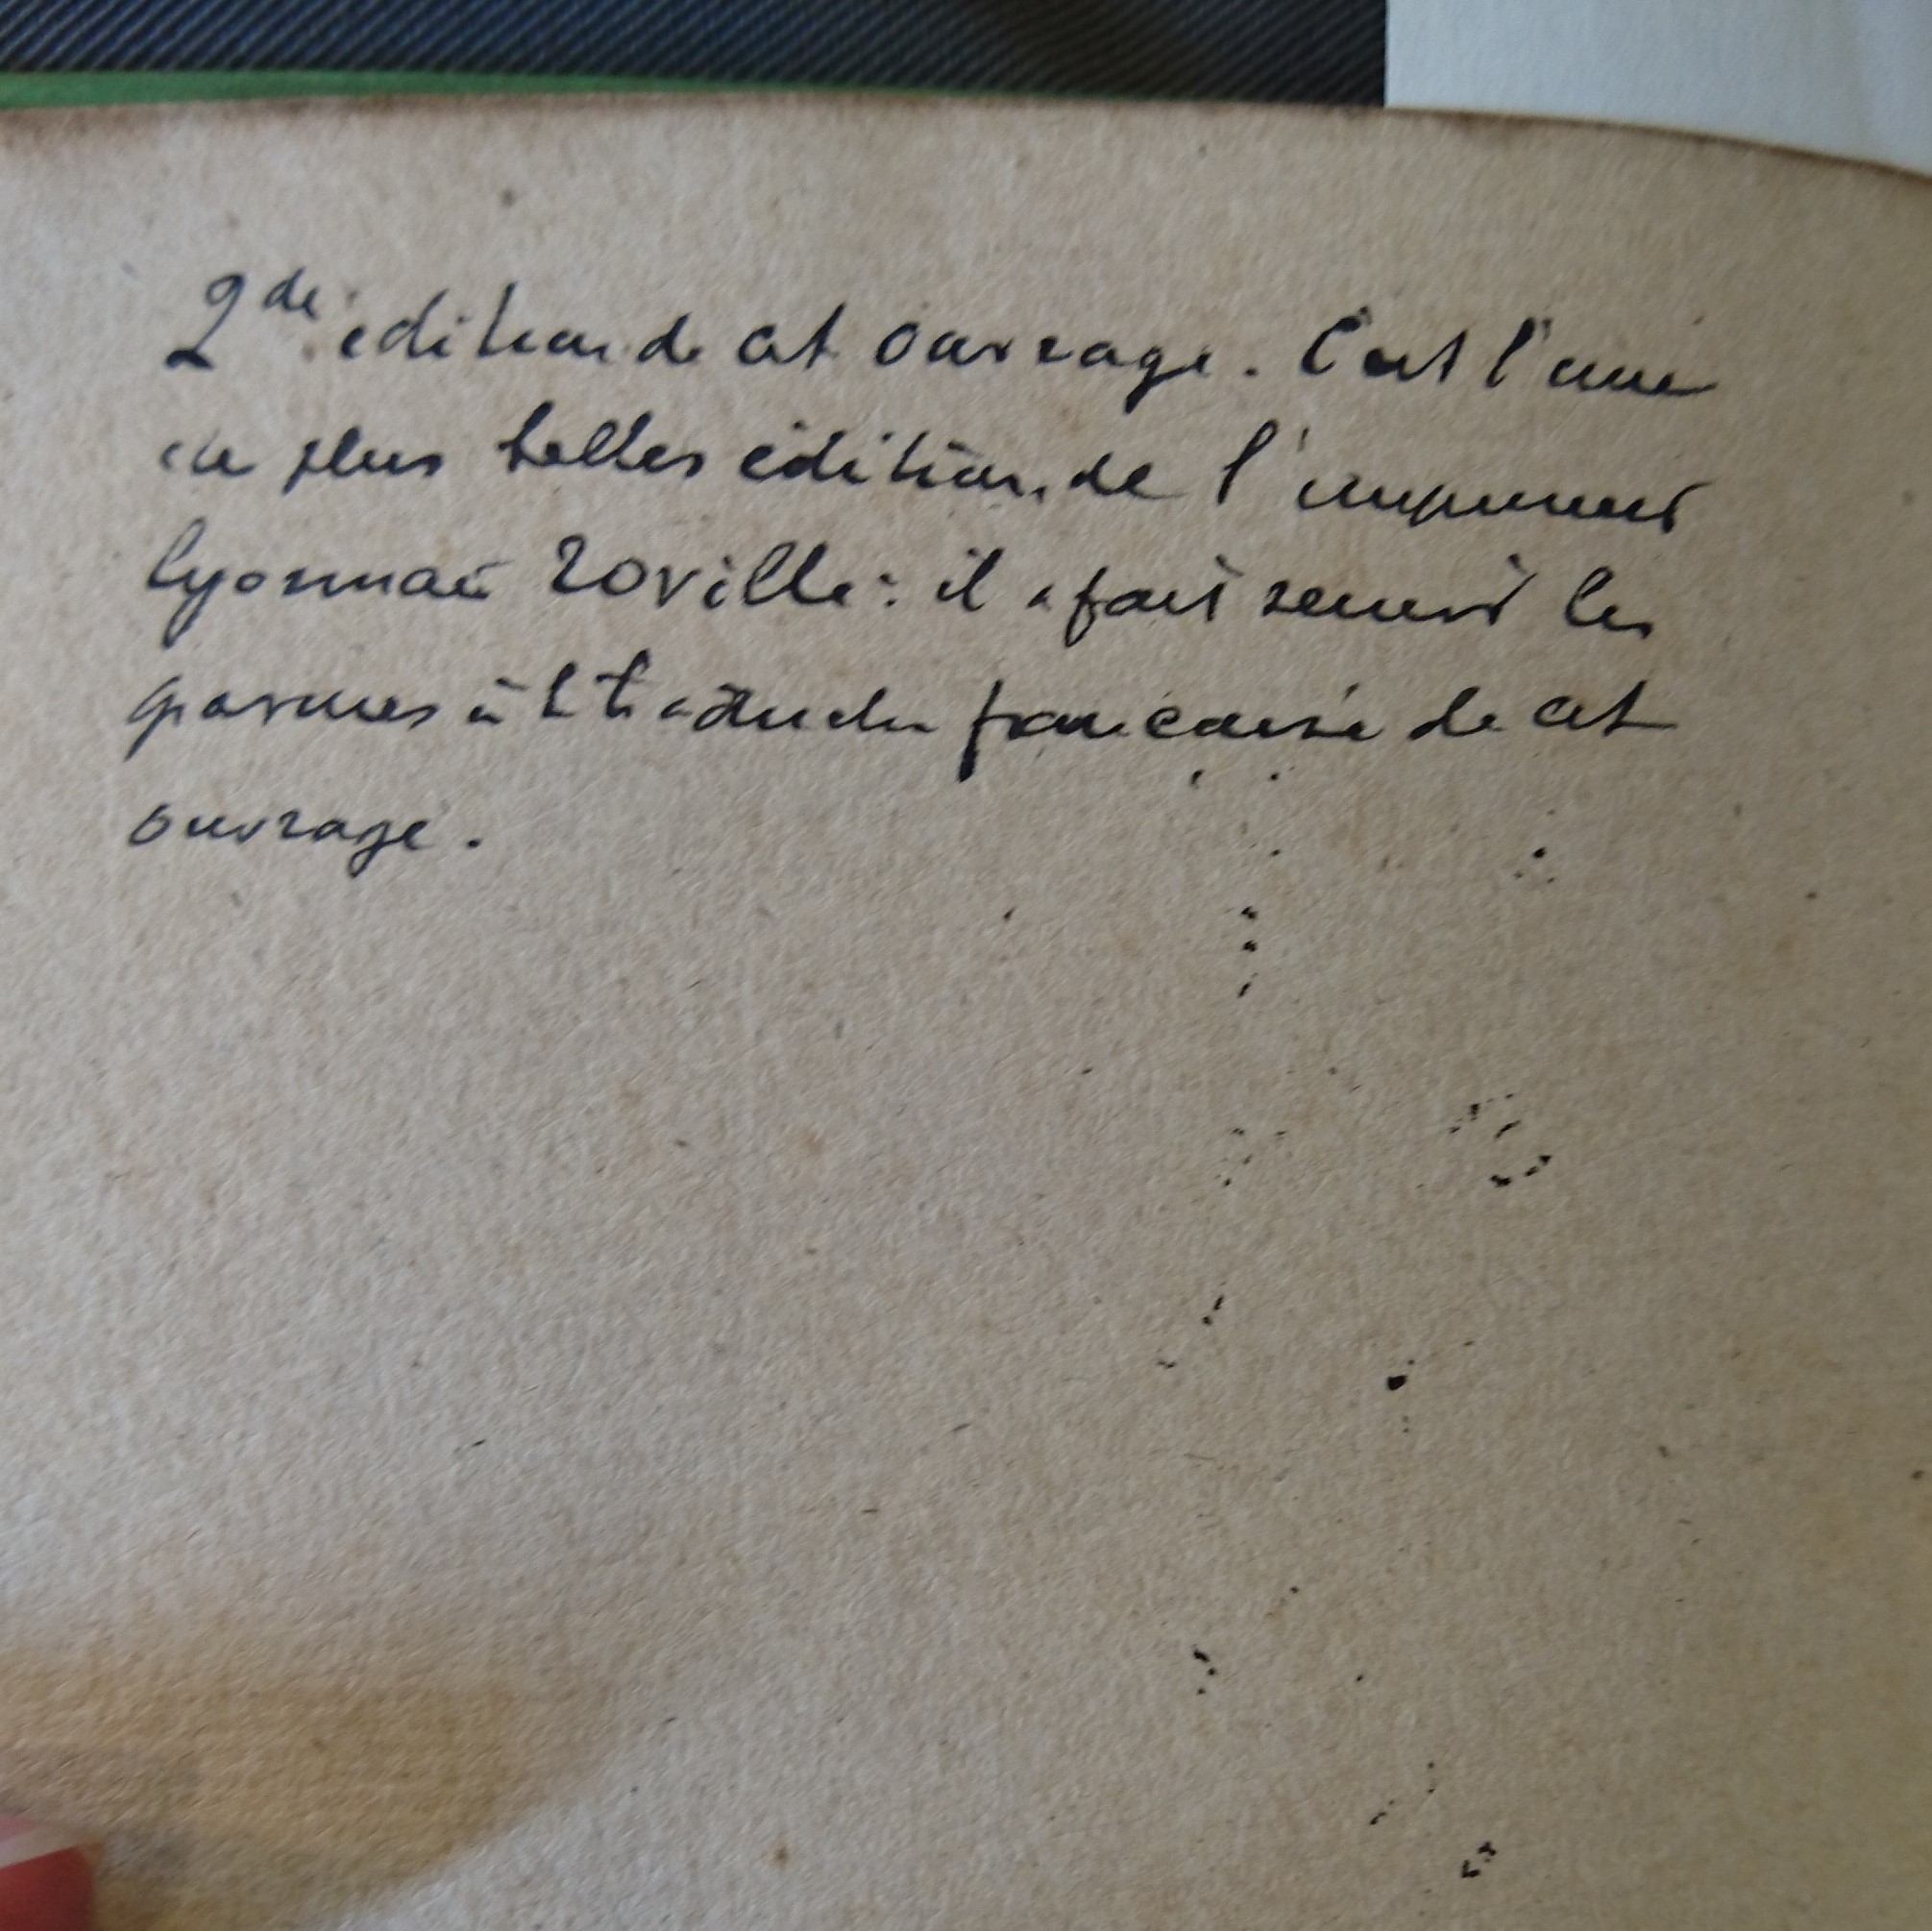 2de édition de cet ouvrage. C'est l'une
des plus belles éditions de l'imprimeur
lyonnais Roville : il a fait servir les
gravures à la traduction française de cet
ouvrage.